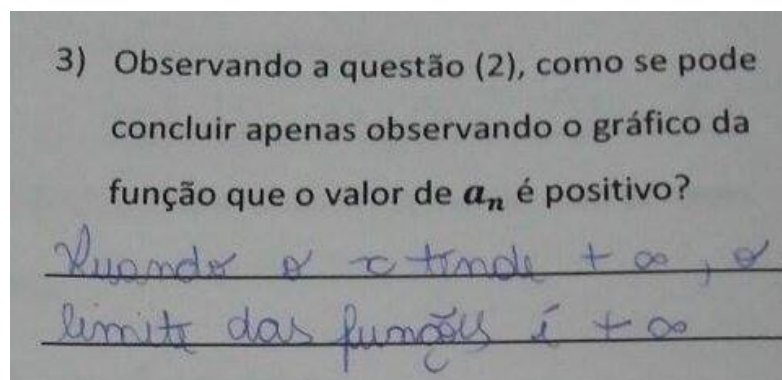 3) Observando a questão (2), como se pode
concluir apenas observando o gráfico da
função que o valor de aₙ é positivo?
Quando o x tende + ∞, o
limite das funções é + ∞